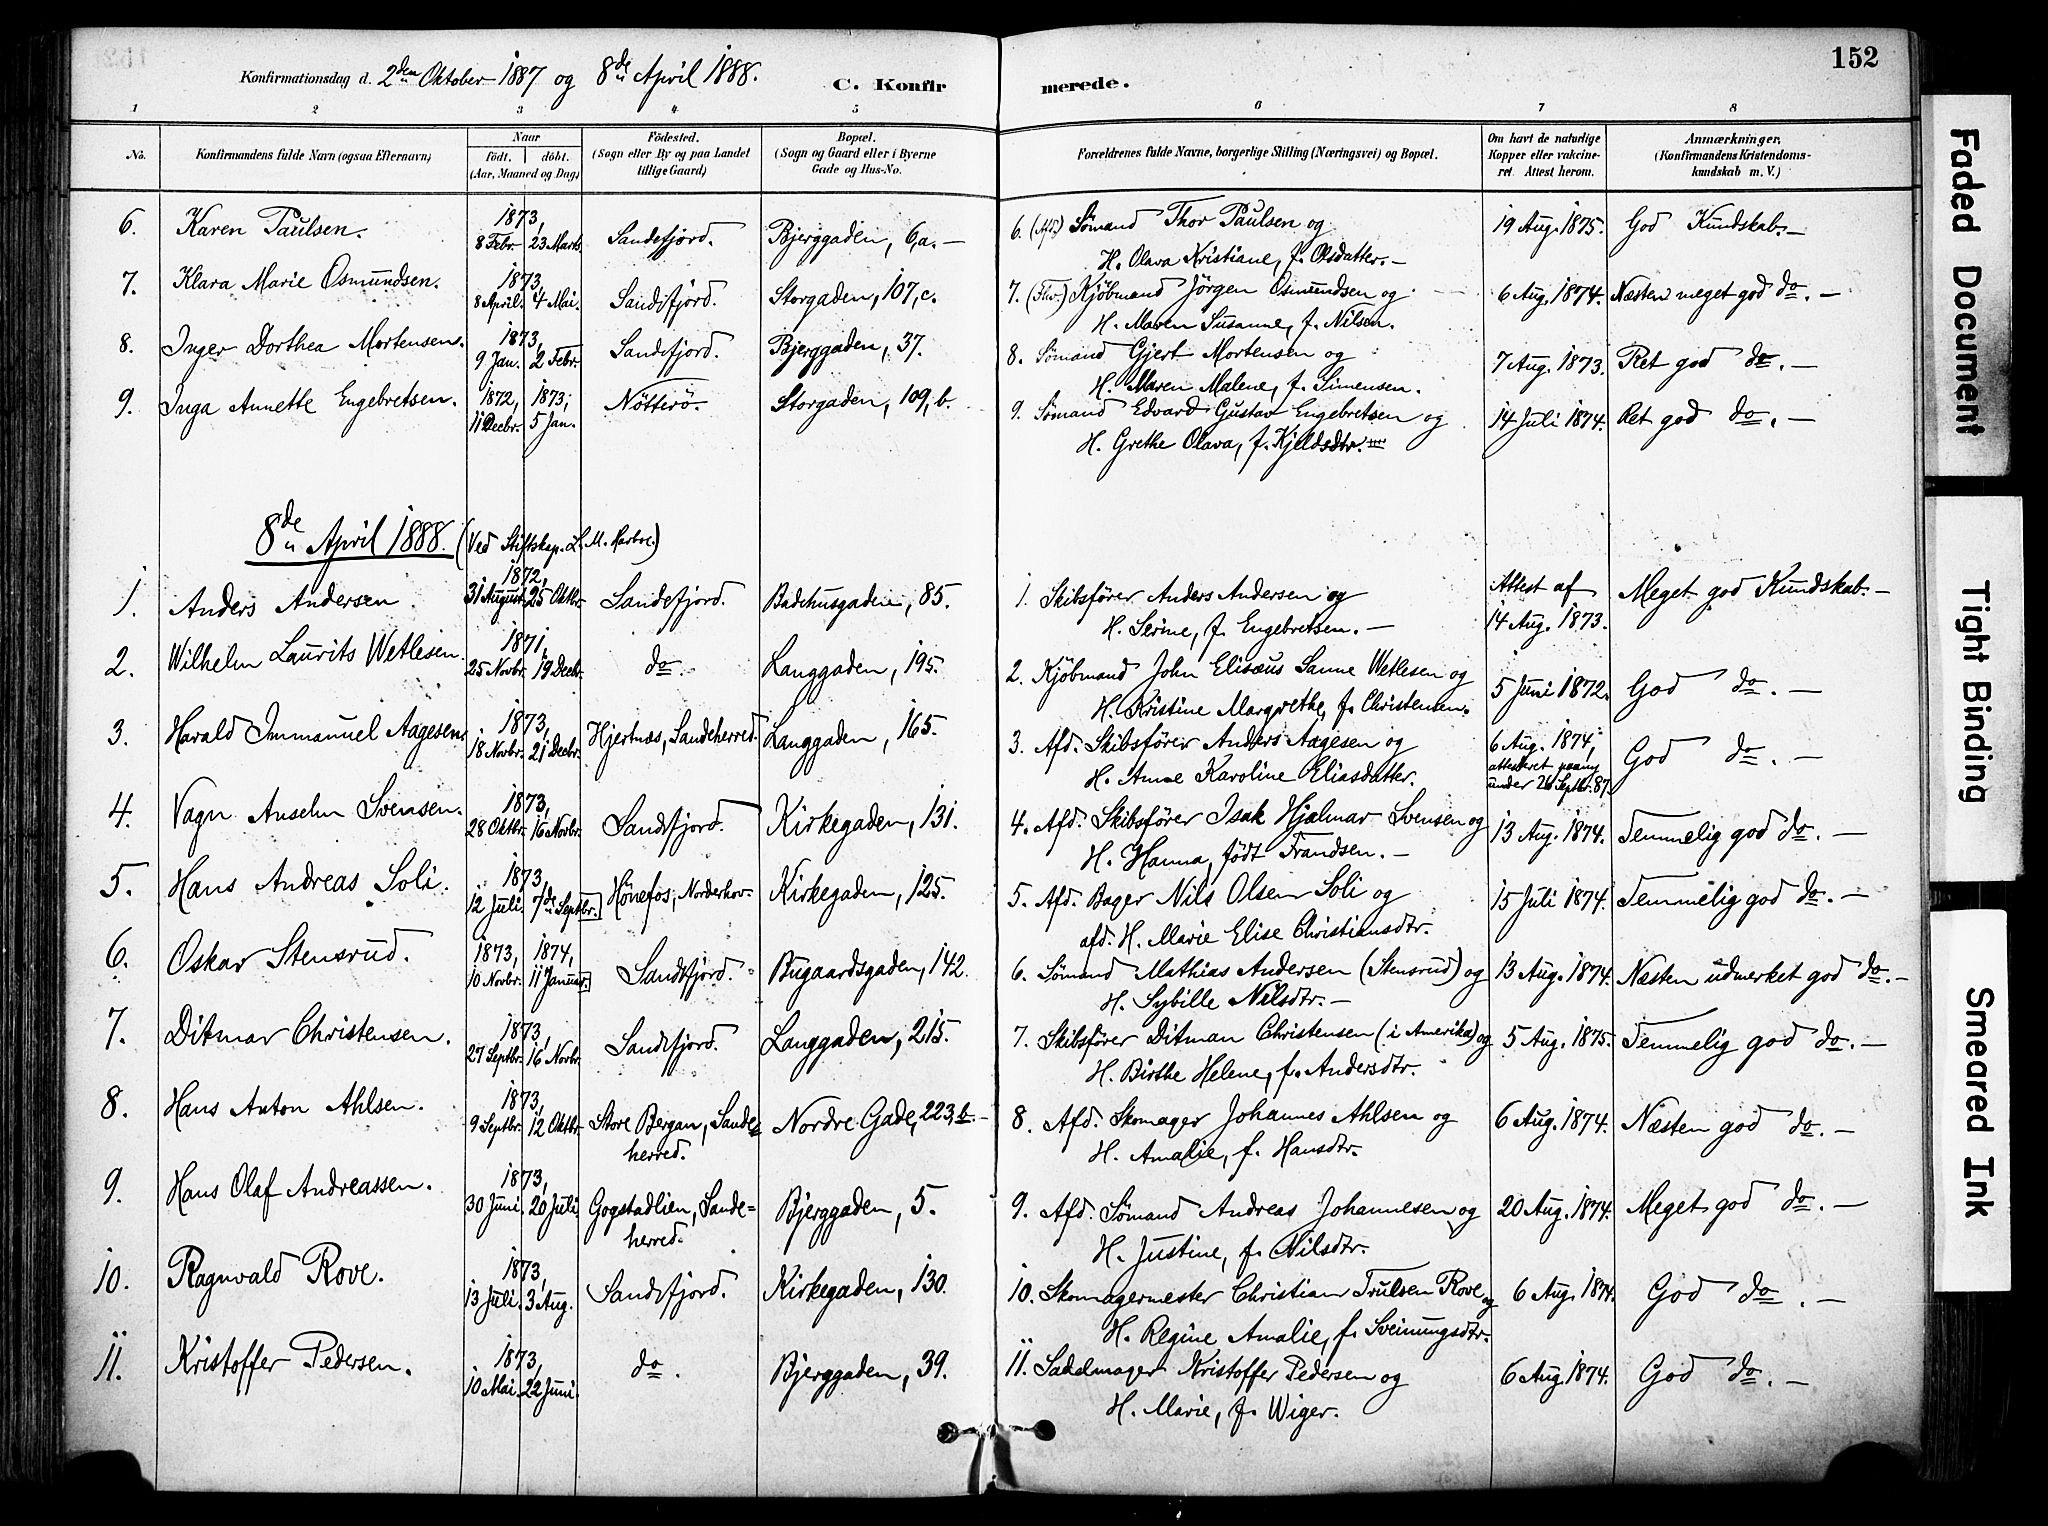 152
Konfirmationsdag d. 2den Oktober 1887 og 8de April 1888.
C. Konfirmerede.
1 2 3 4 5 6 7 8
No.
Konfirmandens fulde Navn (ogsaa Efternavn)
Naar
födt. döbt.
(Aar, Maaned og Dag)
Födested.
(Sogn eller By og paa Landet
tillige Gaard)
Bopæl.
(Sogn og Gaard eller i Byerne
Gade og Hus-No.
Forældrenes fulde Navne, borgerlige Stilling (Næringsvei) og Bopæl.
Om havt de naturlige
Kopper eller vakcine-
ret. Attest herom.
Anmærkninger.
(Konfirmandens Kristendoms-
kundskab m. V.)
6. Karen Paulsen. 1873, 8 Febr. 23 Marts. Sandefjord. Bjerggaden, 6,a. — 6. (Afd.) Sømand Thor Paulsen og 19 Aug. 1875. God Kundskab. —
H. Olava Kristiane, f. Olsdatter. —
7. Klara Marie Osmundsen. 1873, 8 April. 4 Mai. Sandefjord. Storgaden, 107, c. 7. (Fhv.) Kjöbmand Jörgen Osmundsen og 6 Aug. 1874. Næsten meget god do. —
H. Maren Susanne, f. Nilsen.
8. Inger Dorthea Mortensen. 1873, 9 Jan. 2 Febr. Sandefjord. Bjerggaden, 37. 8. Sömand Gjert Mortensen og 7 Aug. 1873. Ret god do. —
H. Maren Malene, f. Simensen.
9. Inga Annette Engebretsen. 1872, 11 Decbr. 1873, 5 Jan. Nötterö. Storgaden, 109, b. 9. Sömand Edvard Gustav Engebretsen og 14 Juli 1874. Ret god do. —
H. Grethe Olava, f. Kjeldsdtr.
8de April 1888. (Ved Stiftskap. L. M. Harboe.)
1. Anders Andersen. 1872, 31 August. 25 Oktbr. Sandefjord. Badehusgaden, 85. 1. Skibsförer Anders Andersen og Attest af Meget god Kundskab. —
H. Serine, f. Engebretsen. — 14 Aug. 1873.
2. Wilhelm Laurits Wetlesen. 1871, 25 Novbr. 19 Decbr. do. Langgaden, 195. 2. Kjöbmand John Elisæus Sanne Wetlesen og 5 Juni 1872. God do. —
H. Kristine Margrethe, f. Christensen.
3. Harald Immanuel Aagesen. 1873, 18 Novbr. 21 Decbr. Hjertnæs, Sandeherred. Langgaden, 165. 3. Afd. Skibsförer Anders Aagesen og 6 Aug. 1874, God do. —
H. Anne Karoline Eliasdatter. attesteret paany
under 26 Septbr. 87.
4. Vagn Anselm Svensen. 1873, 28 Oktbr. 16 Novbr. Sandefjord. Kirkegaden, 131. 4. Afd. Skibsförer Isak Hjalmar Svensen og 13 Aug. 1874. Temmelig god do. —
H. Hanna, födt Frandsen. —
5. Hans Andreas Soli. 1873, 12 Juli. 7de Septbr. Hönefos, Norderhov. Kirkegaden, 125. 5. Afd. Bager Nils Olsen Soli og 15 Juli 1874. Temmelig god do. —
afd. H. Marie Elise Christiansdtr.
6. Oskar Stensrud. 1873, 10 Novbr. 1874, 11 Januar. Sandefjord. Bugaardsgaden, 142. 6. Sömand Mathias Andersen (Stensrud) og 13 Aug. 1874. Næsten udmerket god do. —
H. Sybille Nilsdtr. —
7. Ditmar Christensen. 1873, 27 Septbr. 16 Novbr. Sandefjord. Langgaden, 215. 7. Skibsförer Ditman Christensen (i Amerika) og 5 Aug. 1875. Temmelig god do. —
H. Birthe Helene, f. Andersdtr.
8. Hans Anton Ahlsen. 1873, 9 Septbr. 12 Oktbr. Store Bergan, Sande= Nordre Gade, 223, b. — 8. Afd. Skomager Johannes Ahlsen og 6 Aug. 1874. Næsten god do. —
herred. H. Amalie, f. Hansdtr.
9. Hans Olaf Andreassen. 1873, 30 Juni. 20 Juli. Gogstadlien, Sande= Bjerggaden, 5. 9. Afd. Sömand Andreas Johannesen og 20 Aug. 1874. Meget god do. —
herred. H. Justine, f. Nilsdtr.
10. Ragnvald Rove. 1873, 13 Juli. 3 Aug. Sandefjord. Kirkegaden, 130. 10. Skomagermester Christian Trulsen Rove og 6 Aug. 1874. God do. —
H. Regine Amalie, f. Sveinungsdtr.
11. Kristoffer Pedersen. 1873, 10 Mai. 22 Juni. do. Bjerggaden, 39. 11. Sadelmager Kristoffer Pedersen og 6 Aug. 1874. God do. —
H. Marie, f. Wiger.
Faded Document
Tight Binding
Smeared Ink